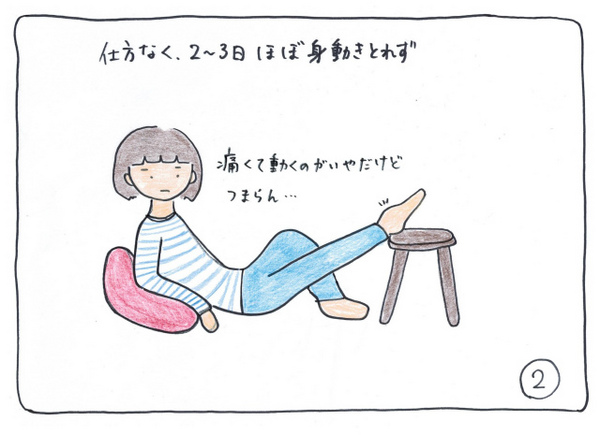 仕方なく、2～3日 ほぼ身動きとれず
痛くて動くのがいやだけど
つまらん…
2